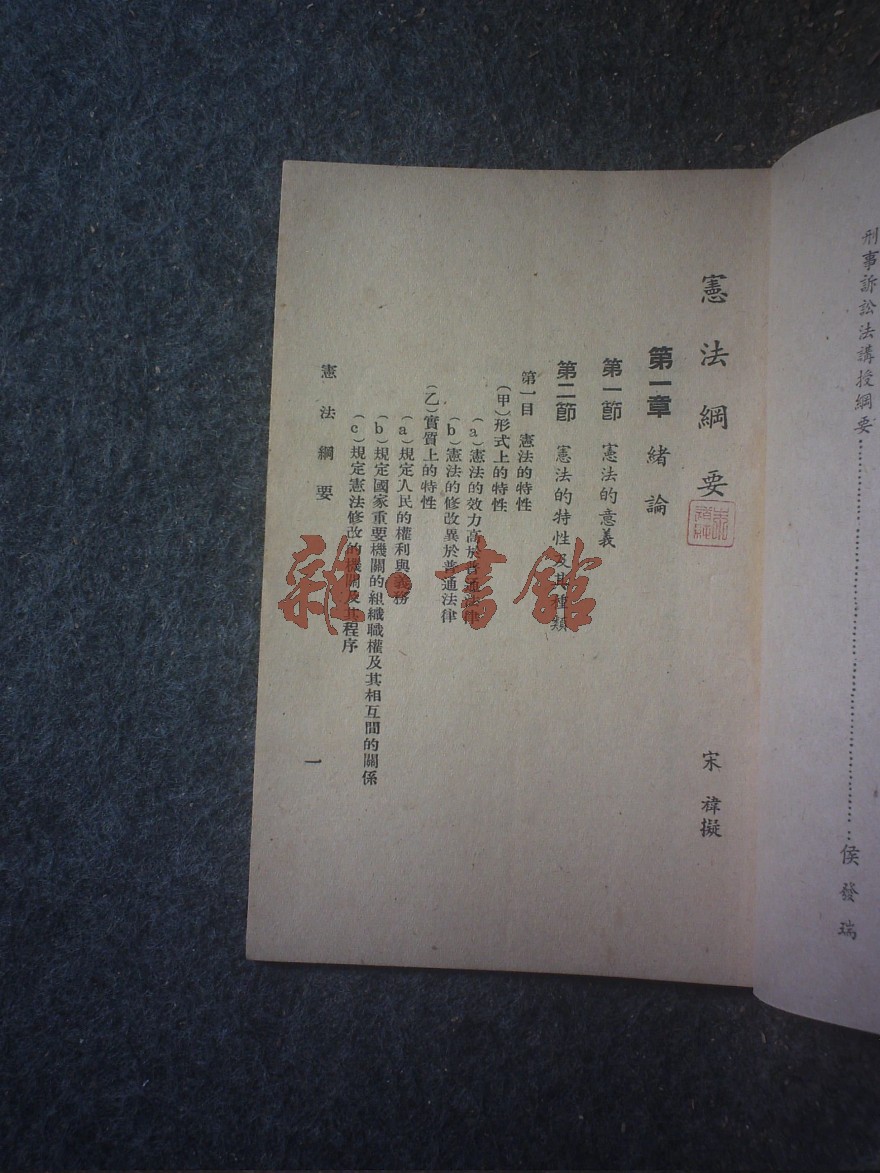 刑事訴訟法講授綱要……侯發瑞
憲法綱要
宋禕擬
第一章 緒論
第一節 憲法的意義
第二節 憲法的特性及其種類
第一目 憲法的特性
(甲)形式上的特性
(a)憲法的效力高於普通法律
(b)憲法的修改異於普通法律
(乙)實質上的特性
(a)規定人民的權利與義務
(b)規定國家重要機關的組織職權及其相互間的關係
(c)規定憲法修改的機關及其程序
憲法綱要
一
雜·書館